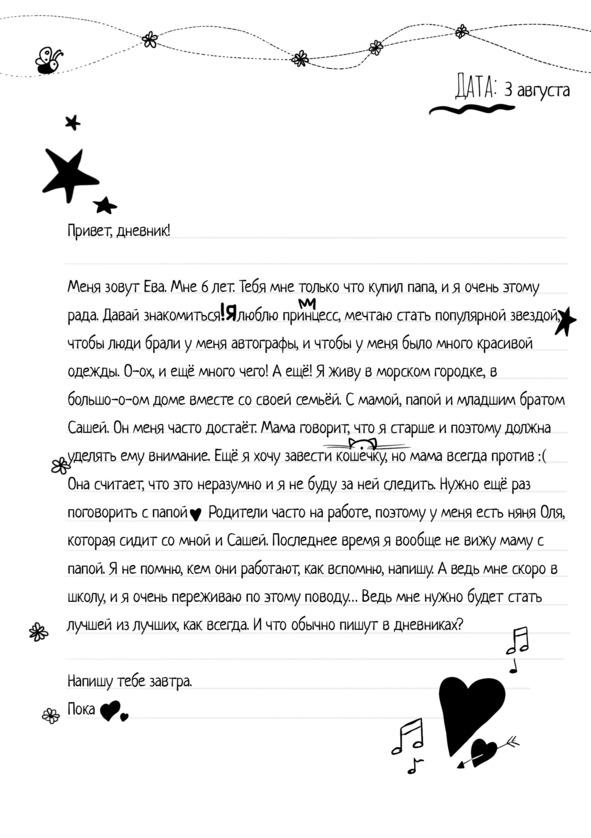 ДАТА: 3 августа
Привет, дневник!
Меня зовут Ева. Мне 6 лет. Тебя мне только что купил папа, и я очень этому
рада. Давай знакомиться!Я люблю принцесс, мечтаю стать популярной звездой,
чтобы люди брали у меня автографы, и чтобы у меня было много красивой
одежды. О-ох, и ещё много чего! А ещё! Я живу в морском городке, в
большо-о-ом доме вместе со своей семьёй. С мамой, папой и младшим братом
Сашей. Он меня часто достаёт. Мама говорит, что я старше и поэтому должна
уделять ему внимание. Ещё я хочу завести кошечку, но мама всегда против :(
Она считает, что это неразумно и я не буду за ней следить. Нужно ещё раз
поговорить с папой♥ Родители часто на работе, поэтому у меня есть няня Оля,
которая сидит со мной и Сашей. Последнее время я вообще не вижу маму с
папой. Я не помню, кем они работают, как вспомню, напишу. А ведь мне скоро в
школу, и я очень переживаю по этому поводу... Ведь мне нужно будет стать
лучшей из лучших, как всегда. И что обычно пишут в дневниках?
Напишу тебе завтра.
Пока